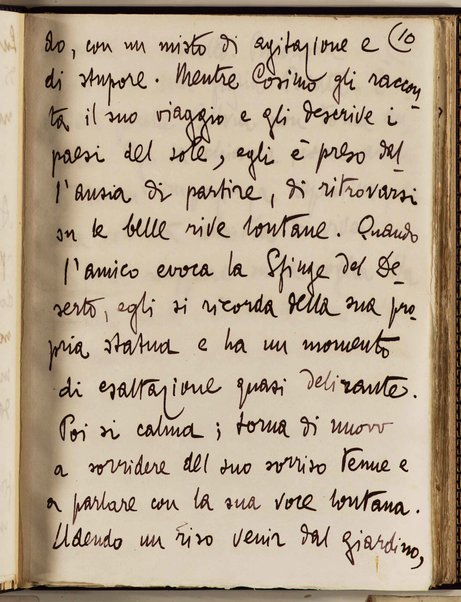 do, con un misto di agitazione e 10
di stupore. Mentre Cosimo gli raccon-
ta il suo viaggio e gli descrive i
paesi del sole, egli è preso dal-
l'ansia di partire, di ritrovarsi
su le belle rive lontane. Quando
l'amico evoca la Sfinge del De-
serto, egli si ricorda della sua pro-
pria statua e ha un momento
di esaltazione quasi delirante.
Poi si calma; torna di nuovo
a sorridere del suo sorriso tenue e
a parlare con la sua voce lontana.
Udendo un riso venir dal giardino,